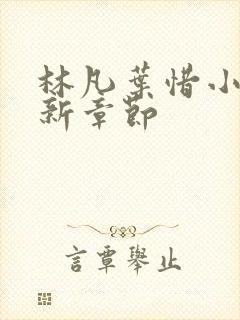 林凡葉惜小
新章節
言覃舉止